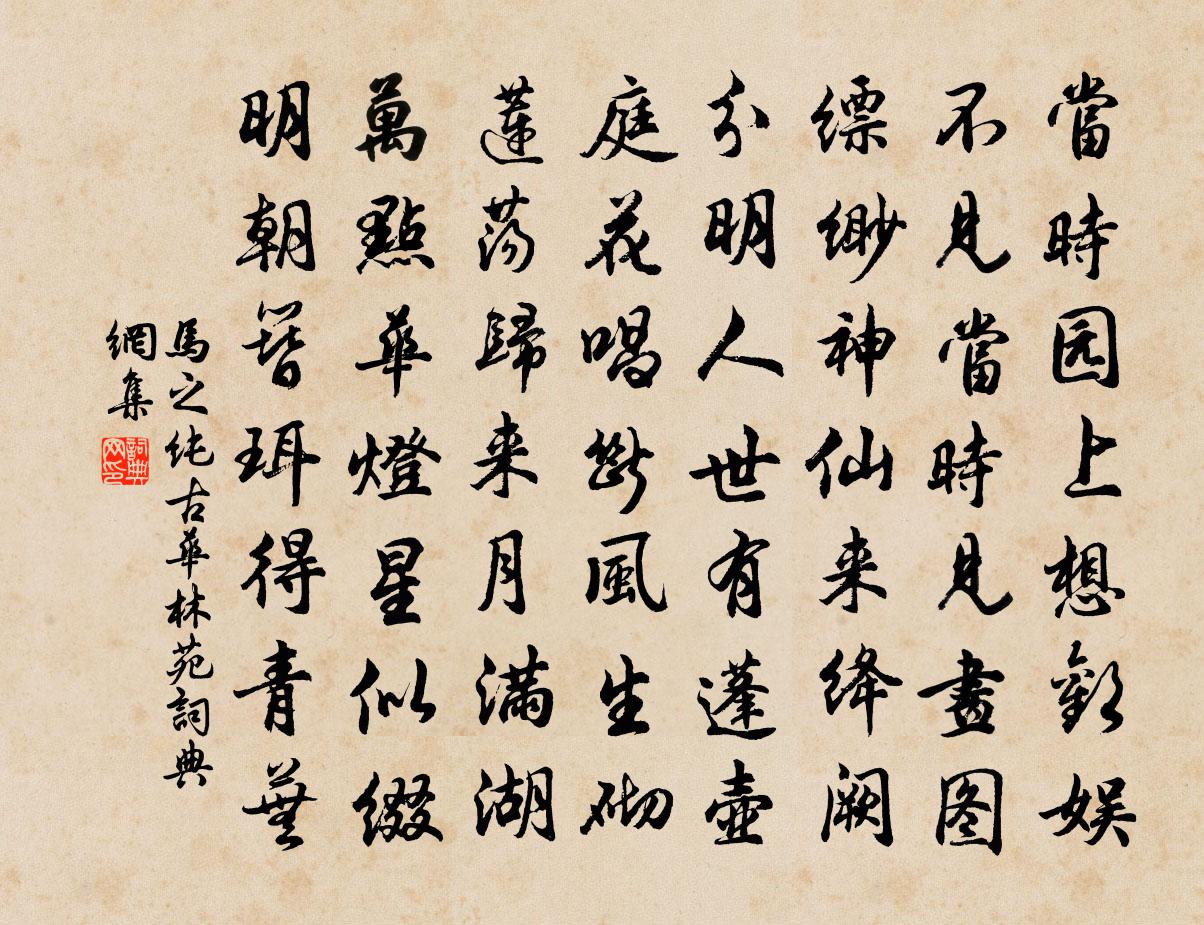 當時园上想歡娱
不見當時見畫图
縹緲神仙来絳阙
分明人世有蓬壺
庭花唱斷風生砌
蓮蕩歸来月满湖
萬點華燈星似缀
明朝簪珥得青蕪
馬之纯古華林苑詞典
網集
詞典
网印